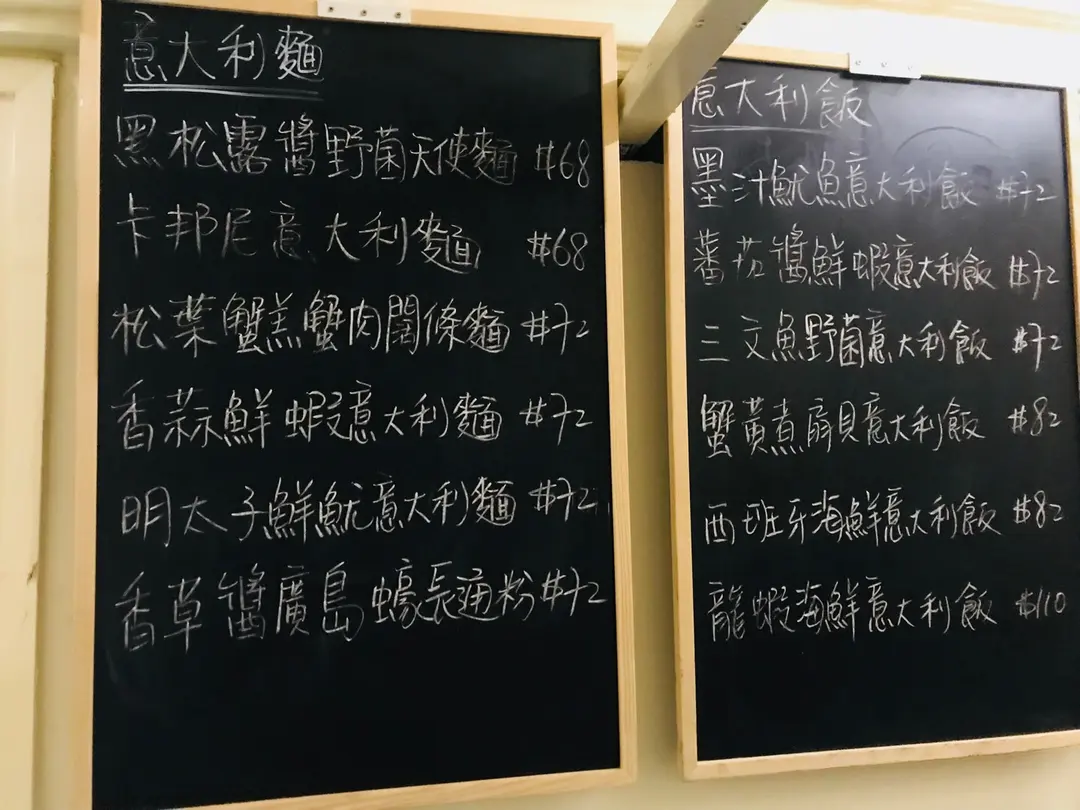 意大利麵
黑松露醬野菌天使麵 $68
卡邦尼意大利麵 $68
松葉蟹羔蟹肉闊條麵 $72
香蒜鮮蝦意大利麵 $72
明太子鮮魷意大利麵 $72
香草醬廣島蠔長通粉 $72
意大利飯
墨汁魷魚意大利飯 $72
蕃茄醬鮮蝦意大利飯 $72
三文魚野菌意大利飯 $72
蟹黃煮扇貝意大利飯 $82
西班牙海鮮意大利飯 $82
龍蝦海鮮意大利飯 $110